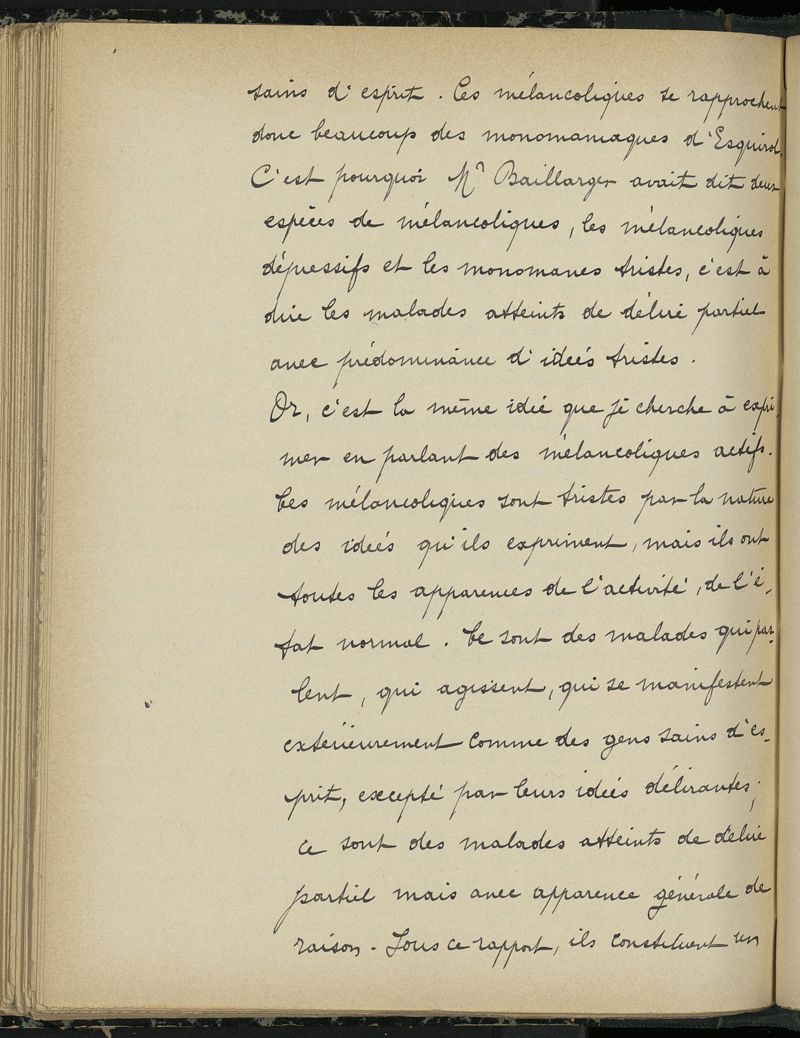 sains d'esprit. Ces mélancoliques se rapprochent
donc beaucoup des monomaniaques d'Esquirol.
C'est pourquoi Mr Baillarger avait dit deux
espèces de mélancoliques, les mélancoliques
dépressifs et les monomanes tristes, c'est à
dire les malades atteints de délire partiel
avec prédominance d'idées tristes.
Or, c'est la même idée que je cherche à expri-
mer en parlant des mélancoliques actifs.
Ces mélancoliques sont tristes par la nature
des idées qu'ils expriment, mais ils ont
toutes les apparences de l'activité, de l'é-
tat normal. Ce sont des malades qui par-
lent, qui agissent, qui se manifestent
extérieurement comme des gens sains d'es-
prit, excepté par leurs idées délirantes ;
ce sont des malades atteints de délire
partiel mais avec apparence générale de
raison. Sous ce rapport, ils constituent un